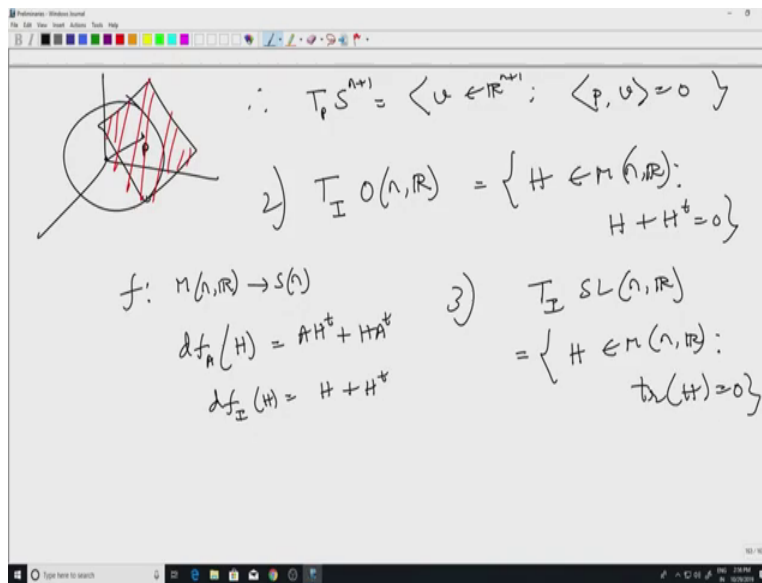 Preliminaries - Windows Journal
File Edit View Insert Actions Tools Help
B I
∴ T_p S^{n+1} = ⟨ v ∈ ℝ^{n+1} ; ⟨p, v⟩ = 0 }
p
2) T_I O(n, ℝ) = { H ∈ M(n, ℝ) :
H + H^t = 0 }
f : M(n, ℝ) → S(n)
df_A (H) = AH^t + HA^t
df_I (H) = H + H^t
3) T_I SL(n, ℝ)
= { H ∈ M(n, ℝ) :
tr(H) = 0 }
Type here to search
ENG 2:06 PM
IN 10/29/2019